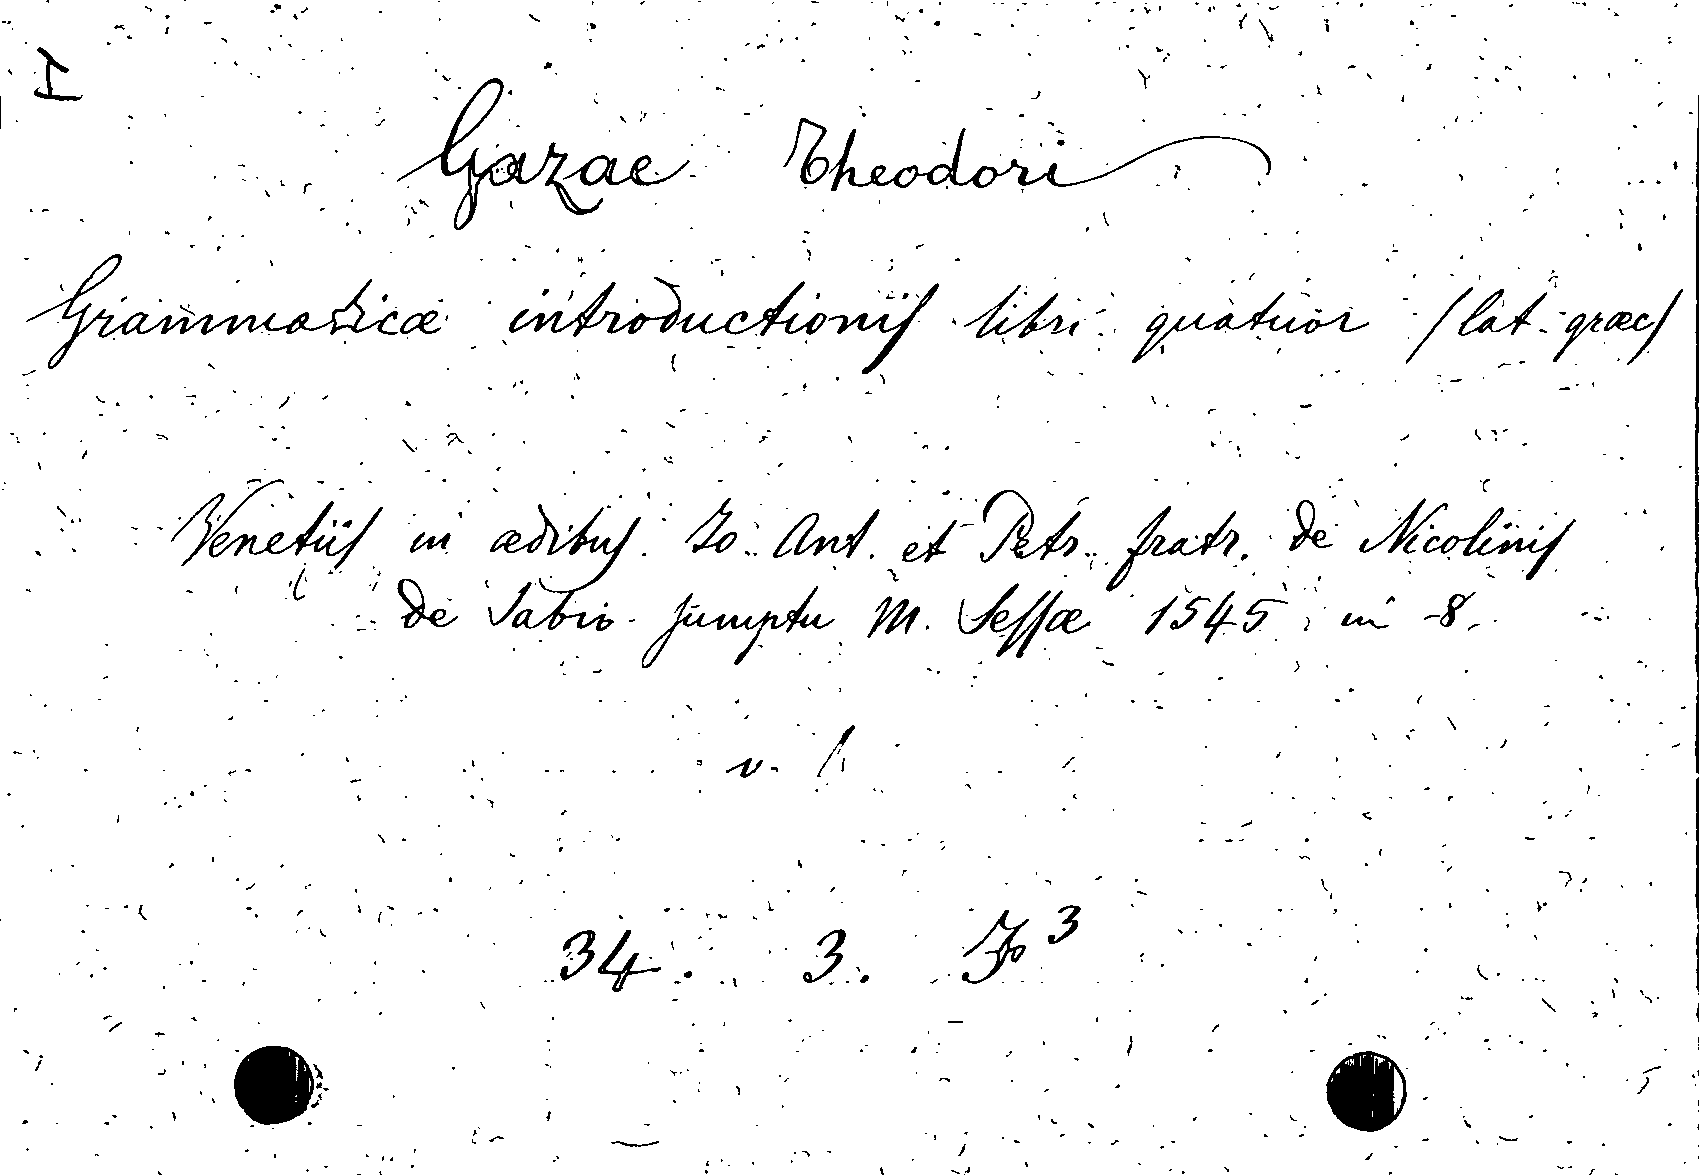 I
Gazae Theodori
Grammaticæ introductionis libri quatuor /lat. græc/
Venetiis in ædibus Jo. Ant. et Petr. fratr. de Nicolinis
de Sabio sumptu M. Sessæ 1545 in 8.
v. 1.
34. 3.